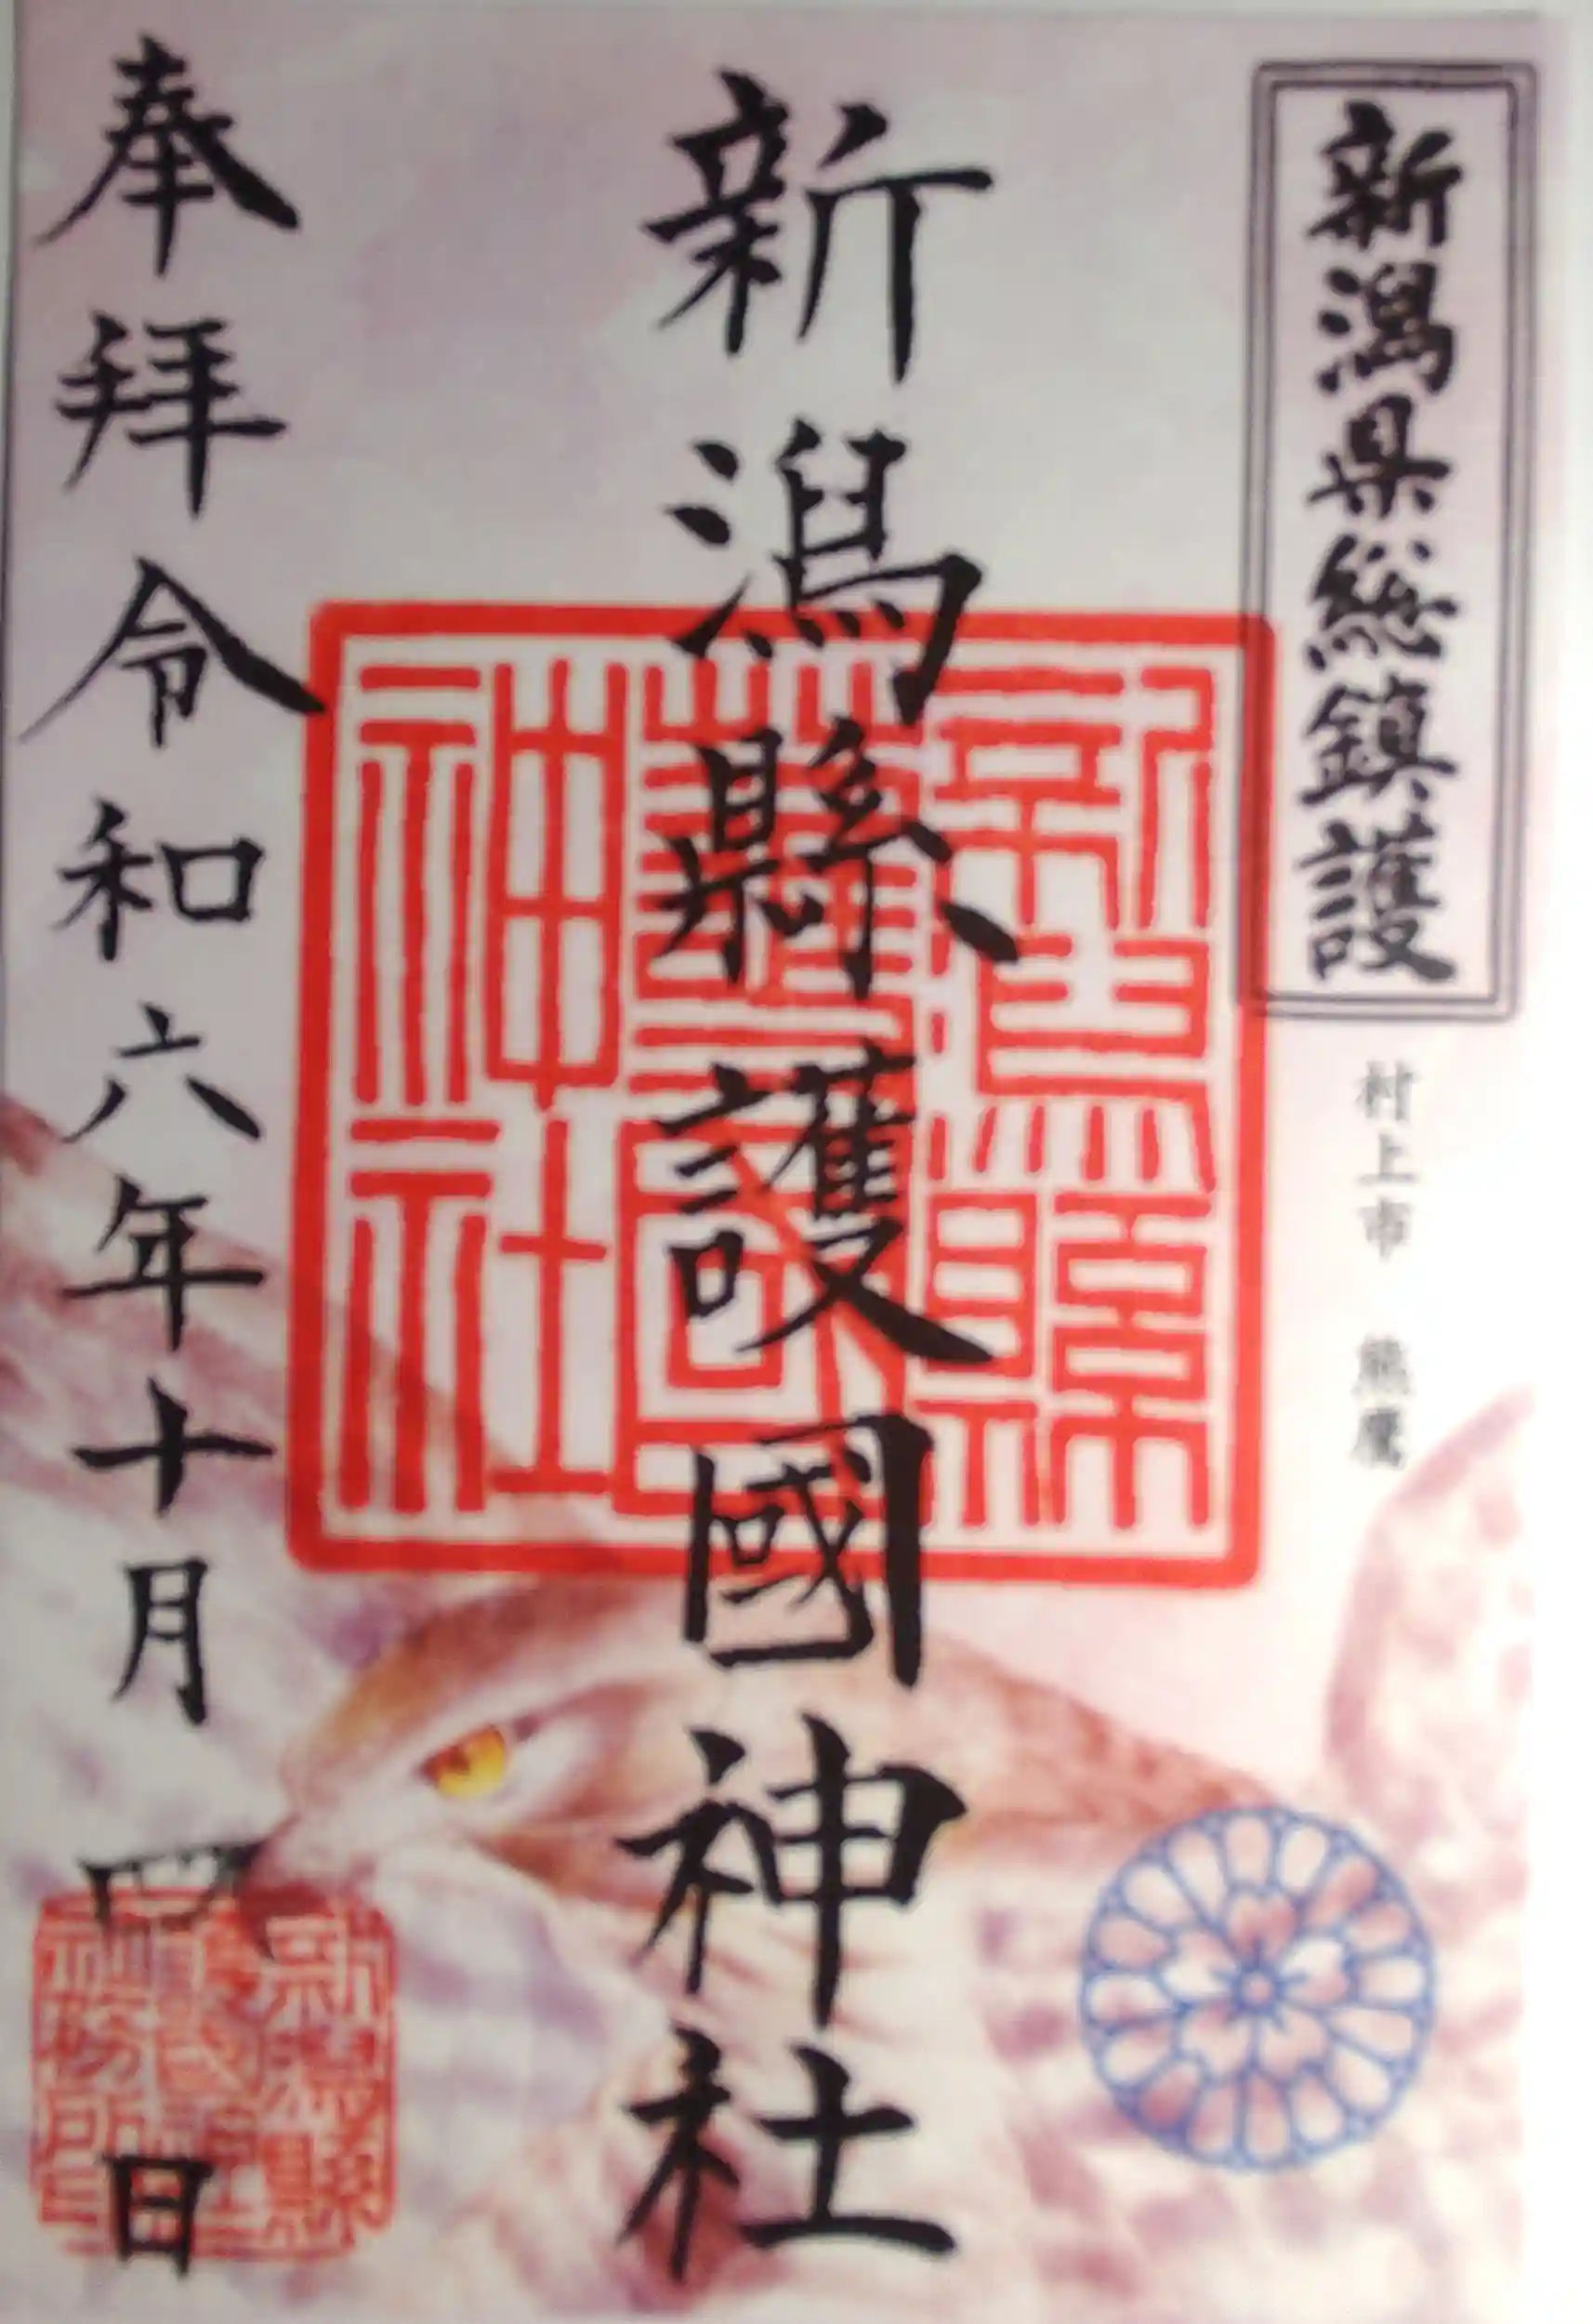 新潟県総鎮護
村上市 熊鷹
新潟縣護國神社
奉拝令和六年十月四日
新潟縣護國神社
新潟縣護國神社社務所印